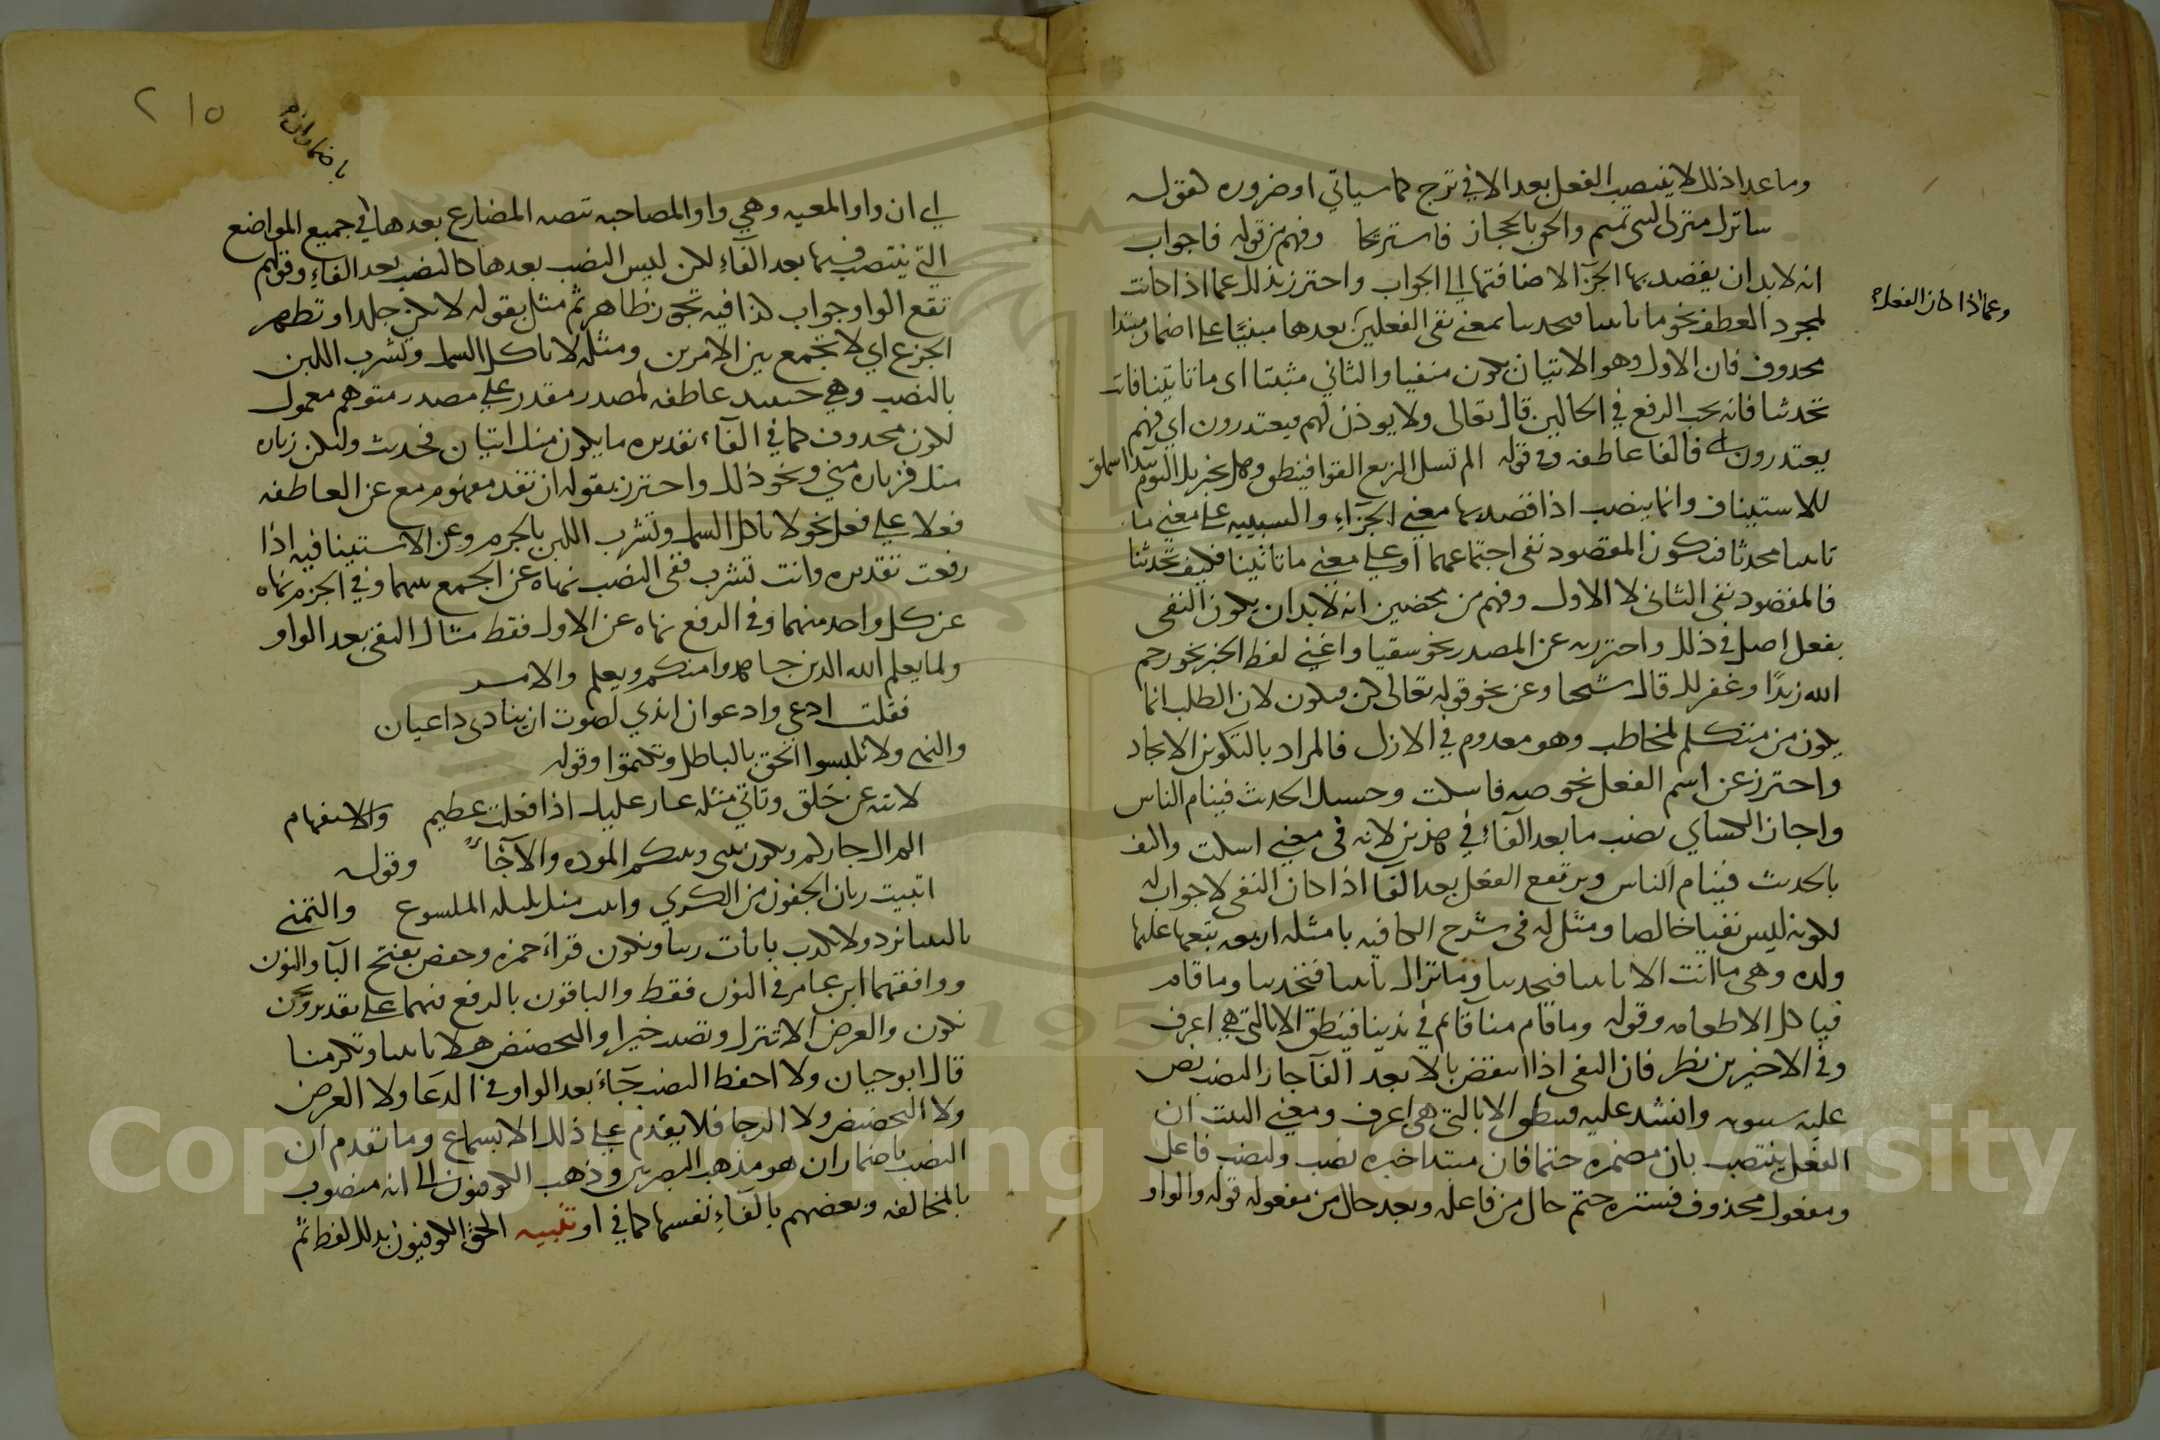 وما عدا ذلك لا ينتصب الفعل بعد الا في ترج كما سياتي او ضروره كقوله
ساترك منزلى لبنى تميم والحق بالحجاز فاستريحا وفهم من قوله فاجواب
انه لابد ان يقصد بها الجزآ لاضافتها الي الجواب واحترز بذلك عما اذا كانت
لمجرد العطف نحو ما تاتينا فتحدثنا بمعني نفى الفعلين بعدها مبنيا على اضمار مبتدا
وعما اذا كان الفعل
محدوف فان الاول وهو الاتيان يكون منفيا والثاني مثبتا اى ما تاتينا فانت
تحدثنا فانه يجب الرفع في الحالين قال تعالى ولا يوذن لهم فيعتدرون اي فهم
يعتدرون فالفا عاطفه وفى قوله الم تسل الربع القوا فينطق وهل تخبرنك اليوم بيدا سملق
للاستيناف وانما ينصب اذا قصد بها معني الجزاء والسببيه على معني ما
تاتينا محدثا فتكون المقصود نفى اجتماعهما او على معني ما تاتينا فكيف تحدثنا
فالمقصود نفى الثانى لا الاول وفهم من محضين انه لابد ان يكون النفى
بفعل اصل فى ذلك واحترز به عن المصدر نحو سقيا واغني لفظ الخبر نحو رحم
الله زيدًا وغفر لك قال شيخنا وعن نحو قوله تعالى كن فيكون لان الطلب انما
يكون من متكلم لمخاطب وهو معدوم في الازل فالمراد بالتكوين الايجاد
واحترز عن اسم الفعل نحو صه فاسكت وحسبك الحديث فينام الناس
واجاز الكساي نصب ما بعد الفآء في هذين لانه فى معني اسكت واكتف
بالحديث فينام الناس ويرتفع الفعل بعد الفآ اذا كان النفى لا جواب له
لكونه ليس نفيا خالصا ومثل له فى شرح الكافيه بامثله اربعه تبعها عليها
ولده وهى ما انت الا تاتينا فتحدثنا وما تزال تاتينا فتحدثنا وما قام
فياكل الا طعامه وقوله وما قام منا قائم في ندينا فينطق الا بالتي هي اعرف
وفى الاخيرين نظر فان النفى اذا انتقض بالا بعد الفآ جاز النصب نص
عليه سيبويه وانشد عليه فينطق الا بالتى هى اعرف ومعني البيت ان
الفعل ينتصب بان مضمره حتما فان مبتدا خبره نصب ولنصب فاعل
ومفعول محذوف فستره حتم حال من فاعله وبعد حال من مفعوله قوله والواو
٢١٥
باضمار ان م
اي ان واو المعيه وهي واو المصاحبه تنصب المضارع بعدها في جميع المواضع
التي ينتصب فيها بعد الفآء لكن ليس النصب بعدها كالنصب بعد الفاء وقولهم
تقع الواو جواب كذا فيه تجوز ظاهر ثم مثل بقوله لا تكن جلدا وتظهر
الجزع اي لا تجمع بين الامرين ومثله لا تاكل السمك وتشرب اللبن
بالنصب وهي حينيد عاطفه لمصدر مقدر علي مصدر متوهم معمول
لكون محدوف كما في الفآء تقديره ما يكون منك اتيان فحديث وليكن زياره
منك فزياره مني ونحو ذلك واحترز بقوله ان تفد مفهوم مع عن العاطفه
فعلا علي فعل نحو لا تاكل السمك وتشرب اللبن بالجزم وعن الاستينافيه اذا
رفعت تقديره وانت تشرب ففى النصب نهاه عن الجمع بينهما وفي الجزم نهاه
عن كل واحد منهما وفى الرفع نهاه عن الاول فقط مثال النفى بعد الواو
ولما يعلم الله الدين جاهدوا منكم ويعلم والامر
فقلت ادعي وادعو ان اندي لصوت ان ينادى داعيان
والنهي ولا تلبسوا الحق بالباطل وتكتموا وقوله
لا تنه عن خلق وتاتي مثله عار عليك اذا فعلت عظيم والاستفهام
الم اك جاركم ويكون بينى وبينكم الموده والاخآء وقوله
اتبيت ريان الجفون من الكري وابيت منك بليله الملسوع والتمني
ياليتنا نرد ولا نكدب بايات ربنا ونكون قراء حمزه وحفص بفتح البآ والنون
ووافقهما ابن عامر في النون فقط والباقون بالرفع فيهما على تقدير ونحن
نكون والعرض الا تنزل وتصب خيرا والتحضيض هلا تاتينا وتكرمنا
قال ابو حيان ولا احفظ النصب جآء بعد الواو في الدعا ولا العرض
ولا التحضيض ولا الرجا فلا يقدم علي ذلك الا بسماع وما تقدم ان
النصب باضمار ان هو مذهب البصريين وذهب الكوفيون الى انه منصوب
بالمخالفه وبعضهم بالفآء نفسها كما في او تنبيه الحق الكوفيون بذلك لفظ ثم